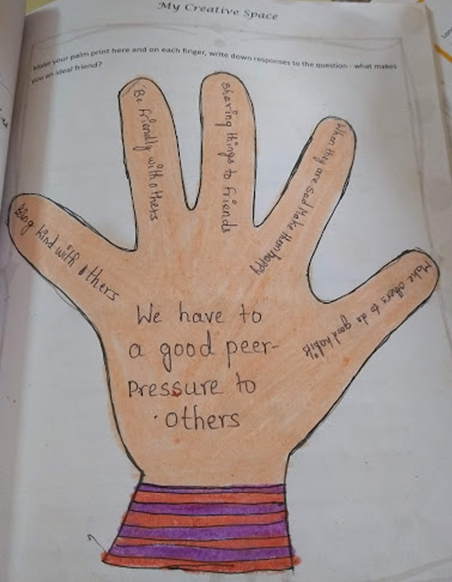 My Creative Space
Make your palm print here and on each finger, write down responses to the question - what makes
you an ideal friend?
Being kind with others
Be friendly with others
Sharing things to friends
When they are sad Make them happy
Make others to do good habits
We have to
a good peer-
Pressure to
others